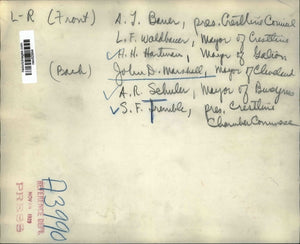 L-R (Front) A. J. Bauer, pres. Crestline Council
L. F. Waldbauer, Mayor of Crestline
✓ H. H. Hartman, Mayor of Galion
(Back) John D. Marshall, Mayor of Cleveland
✓ A. R. Schuler, Mayor of Bucyrus
✓ S. F. Tremble, pres. Crestline
Chamber Commerce
A3990
REFERENCE DEPT.
NOV
PRESS